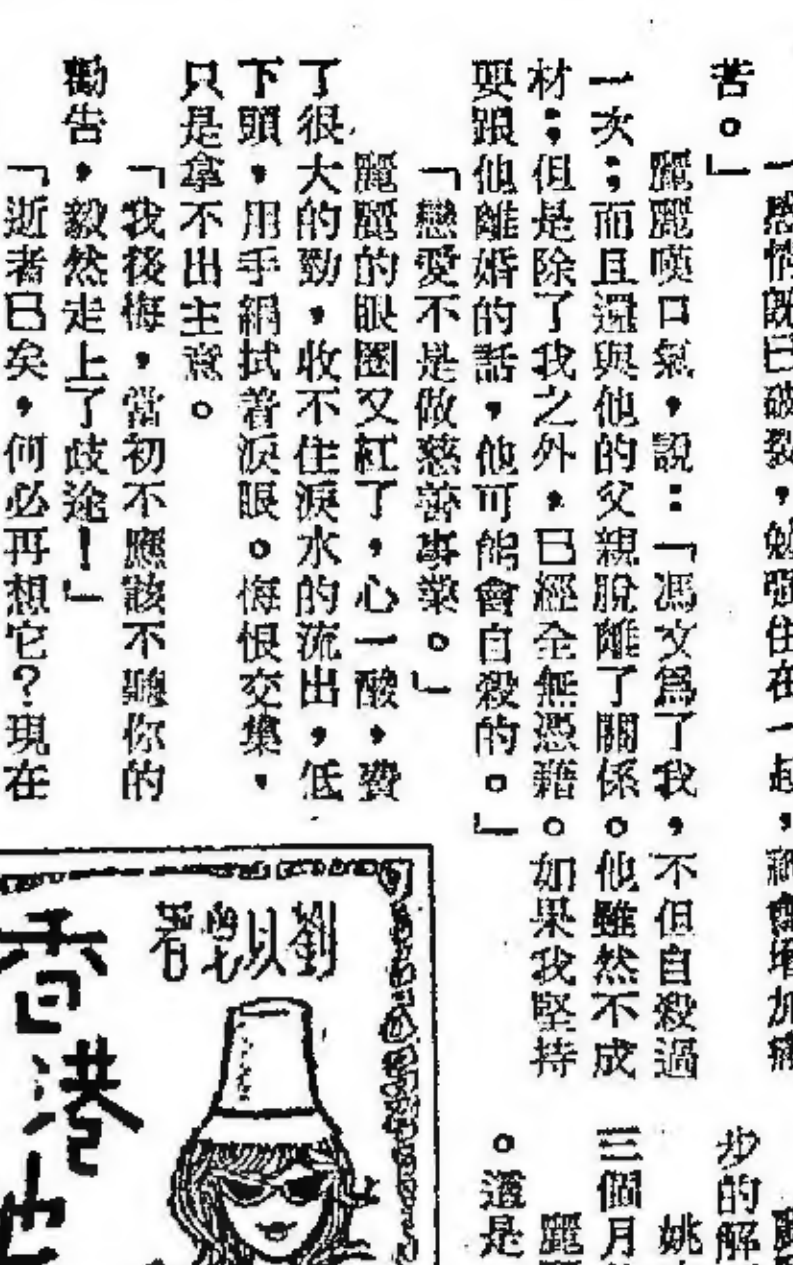 「感情既已破裂，勉強住在一起，祇會增加痛
苦。」
麗麗嘆口氣，說：「馮文爲了我，不但自殺過
一次；而且還與他的父親脫離了關係。他雖然不成
材；但是除了我之外，已經全無憑藉。如果我堅持
要跟他離婚的話，他可能會自殺的。」
「戀愛不是做慈善事業。」
麗麗的眼圈又紅了，心一酸，費
了很大的勁，收不住淚水的流出，低
下頭，用手絹拭着淚眼。悔恨交集，
只是拿不出主意。
「我後悔，當初不應該不聽你的
勸告，毅然走上了歧途！」
「逝者已矣，何必再想它？現在
步的解
姚
三個月
麗
。這是
劉以鬯著
香港